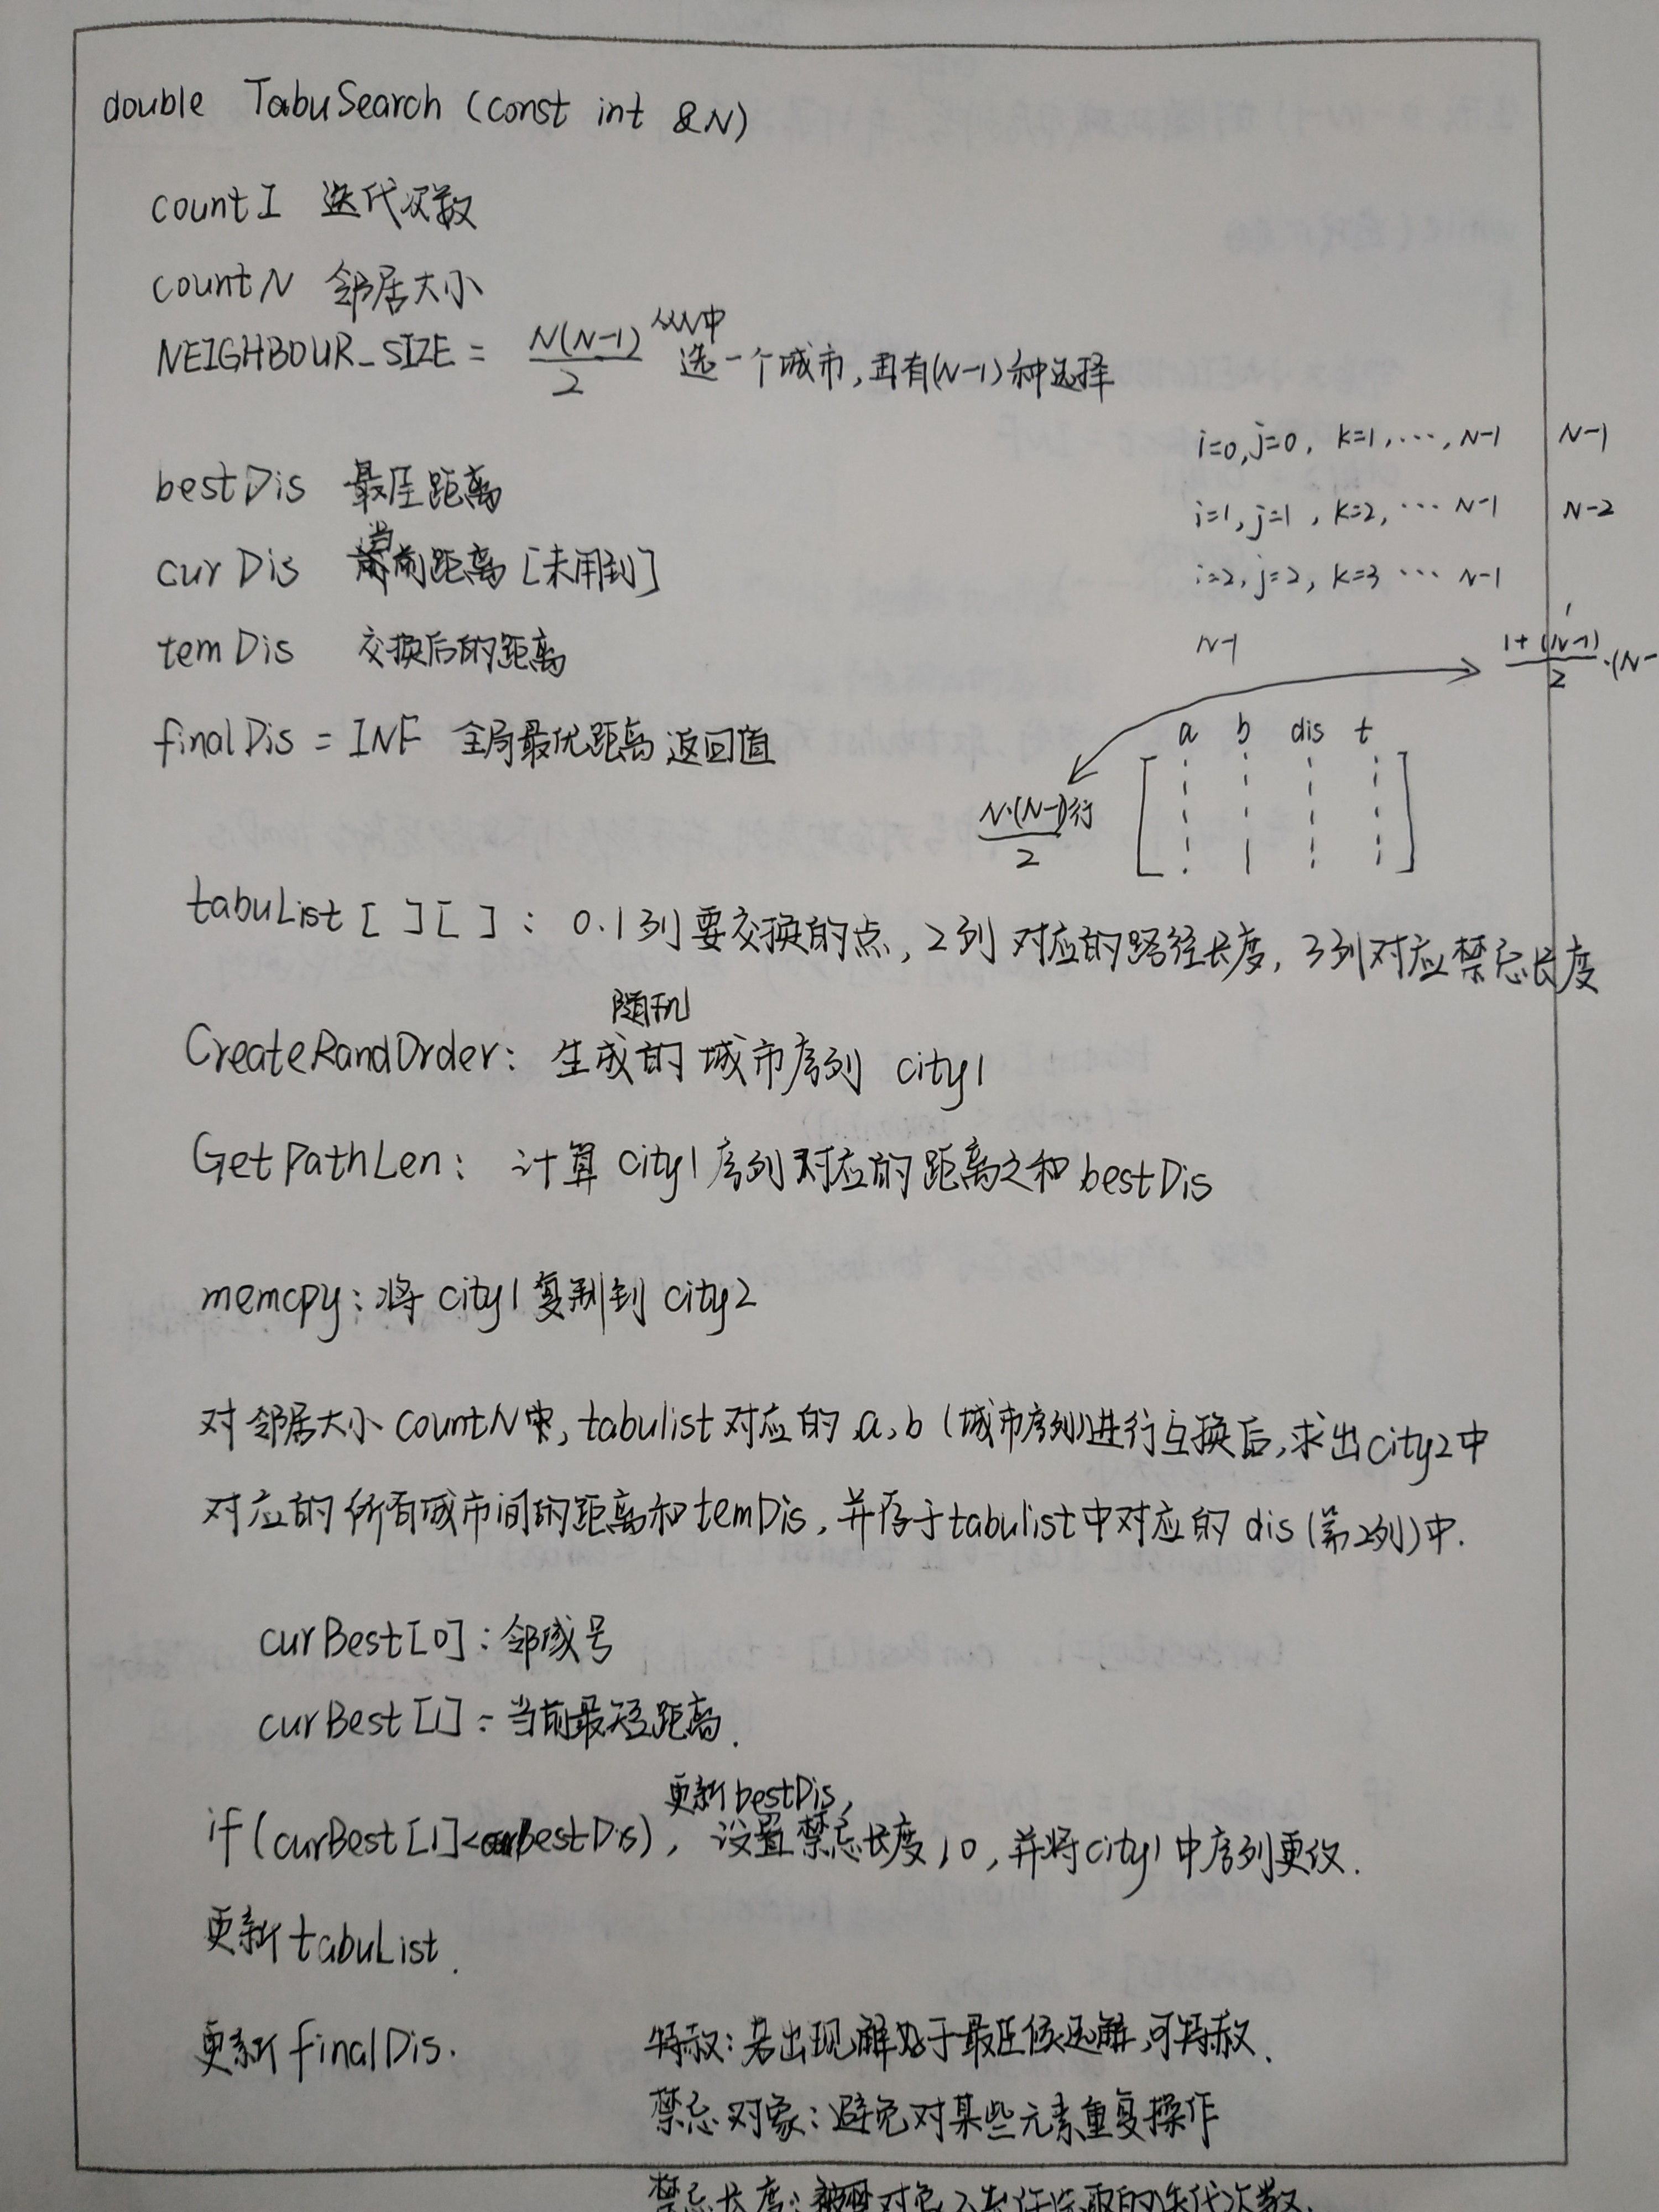 double TabuSearch (const int &N)
countI 迭代次数
countN 邻居大小
NEIGHBOUR_SIZE = N(N-1)/2 从N中选一个城市,再有(N-1)种选择
i=0, j=0, k=1, ..., N-1 N-1
i=1, j=1, k=2, ... N-1 N-2
i=2, j=2, k=3 ... N-1
N-1 1
1+(N-1)/2·(N-
bestDis 最佳距离
curDis 当前距离[未用到]
temDis 交换后的距离
finalDis = INF 全局最优距离 返回值
a b dis t
N·(N-1)/2行
tabuList[ ][ ]: 0.1列要交换的点, 2列对应的路径长度, 3列对应禁忌长度
CreateRandOrder: 随机生成的城市序列 city1
GetPathLen: 计算city1序列对应的距离之和bestDis
memcpy: 将city1复制到city2
对邻居大小countN中, tabulist对应的a,b(城市序列)进行互换后,求出city2中
对应的所有城市间的距离和temDis, 并存于tabulist中对应的dis(第2列)中.
curBest[0]: 邻域号
curBest[1]: 当前最短距离.
if(curBest[1]<bestDis), 更新bestDis, 设置禁忌长度10, 并将city1中序列更改.
更新tabuList.
更新finalDis.
特赦: 若出现解好于最佳候选解,可特赦.
禁忌对象: 避免对某些元素重复操作
禁忌长度: 对象不允许选取的迭代次数.